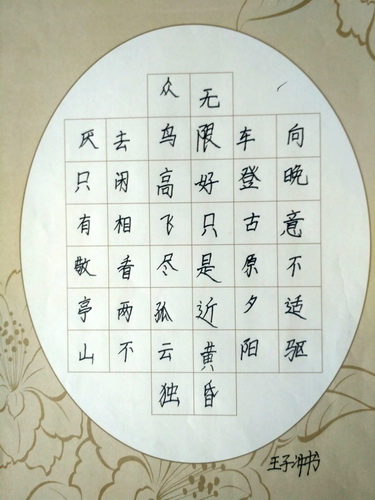 向晚意不适驱
车登古原夕阳
无限好只是近黄昏
众鸟高飞尽孤云独
去闲相看两不
厌只有敬亭山
王子书